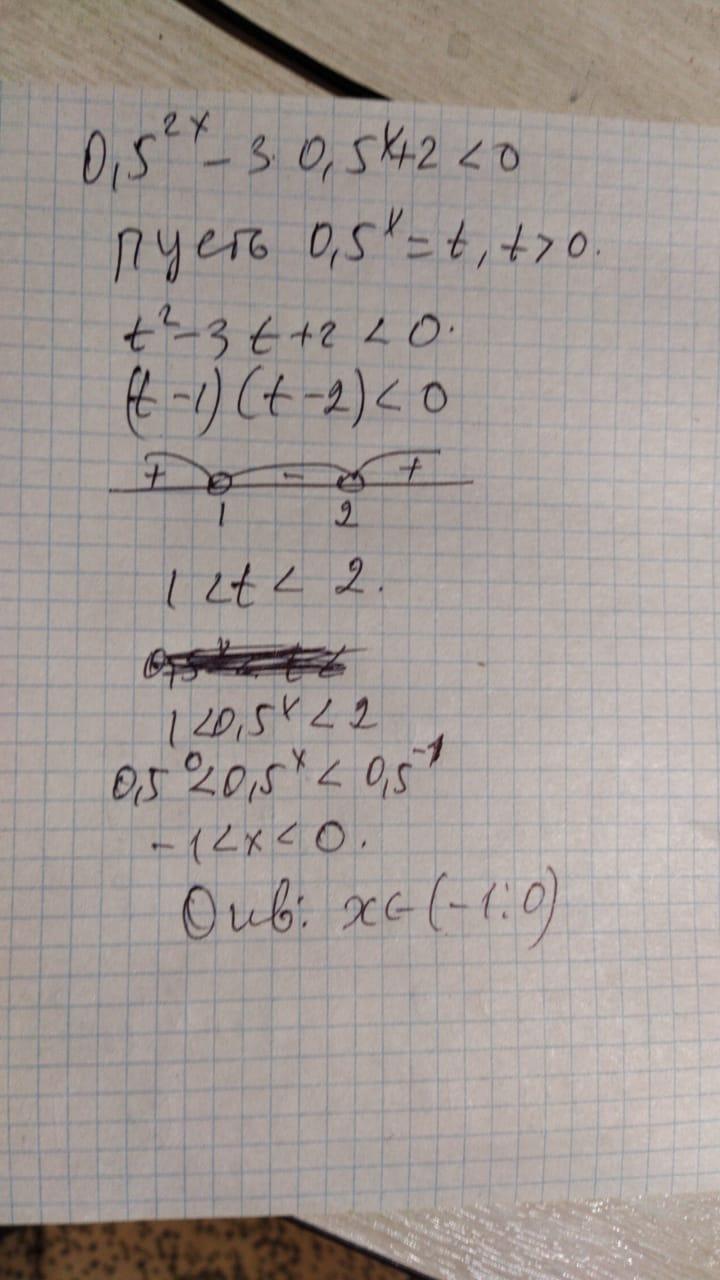 0,5^2x - 3·0,5^x+2 < 0
пусть 0,5^x = t, t > 0.
t^2 - 3t + 2 < 0.
(t - 1)(t - 2) < 0
+ - +
1 2
1 < t < 2.
1 < 0,5^x < 2
0,5^0 < 0,5^x < 0,5^-1
-1 < x < 0.
Отв: x∈(-1;0)